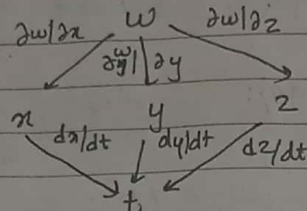 w
∂w/∂x ∂w/∂y ∂w/∂z
x y z
dx/dt dy/dt dz/dt
t